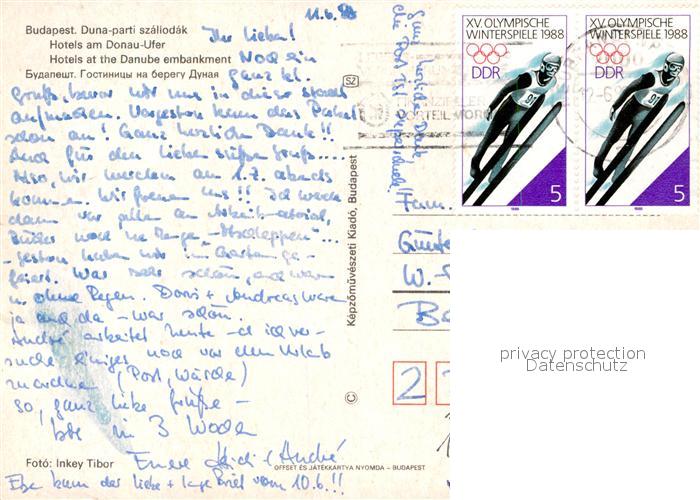 11.6.88
Budapest. Duna-parti szállodák
Hotels am Donau-Ufer
Hotels at the Danube embankment
Будапешт. Гостиницы на берегу Дуная
Ihr Lieben!
Noch ein
ganz kl.
Gruß, bevor wir uns in diese
aufmachen. Vorgestern kam das Paket
schon an! Ganz herzlich Danke!!
Und für den lieben süßen Gruß...
Also, wir werden am 1.7. abends
kommen. Wir freuen uns!! Ich werde
dann vor allen an
noch ne Menge, "Abschleppen"...
gestern haben wir im Garten ge-
feiert. War sehr schön, und wenn
ohne Regen. Doris + Andreas waren
ja auch da - war schön.
André arbeitet heute - ich ver-
suche einiges noch vor dem Urlaub
(Post, Wäsche)
so, ganz liebe Grüße -
bis in 3 Wochen
Eure Heidi + André
Fotó: Inkey Tibor
OFFSET ÉS JÁTÉKKÁRTYA NYOMDA – BUDAPEST
Eben kam der liebe + lange Brief vom 10.6.!!
SZ
Képzőművészeti Kiadó, Budapest
©
Ganz herzlichen Dank
die Post ist
VORTEIL
XV. OLYMPISCHE
WINTERSPIELE 1988
DDR
5
1988
XV. OLYMPISCHE
WINTERSPIELE 1988
DDR
5
1988
Fam.
Günter
W.-
2
privacy protection
Datenschutz